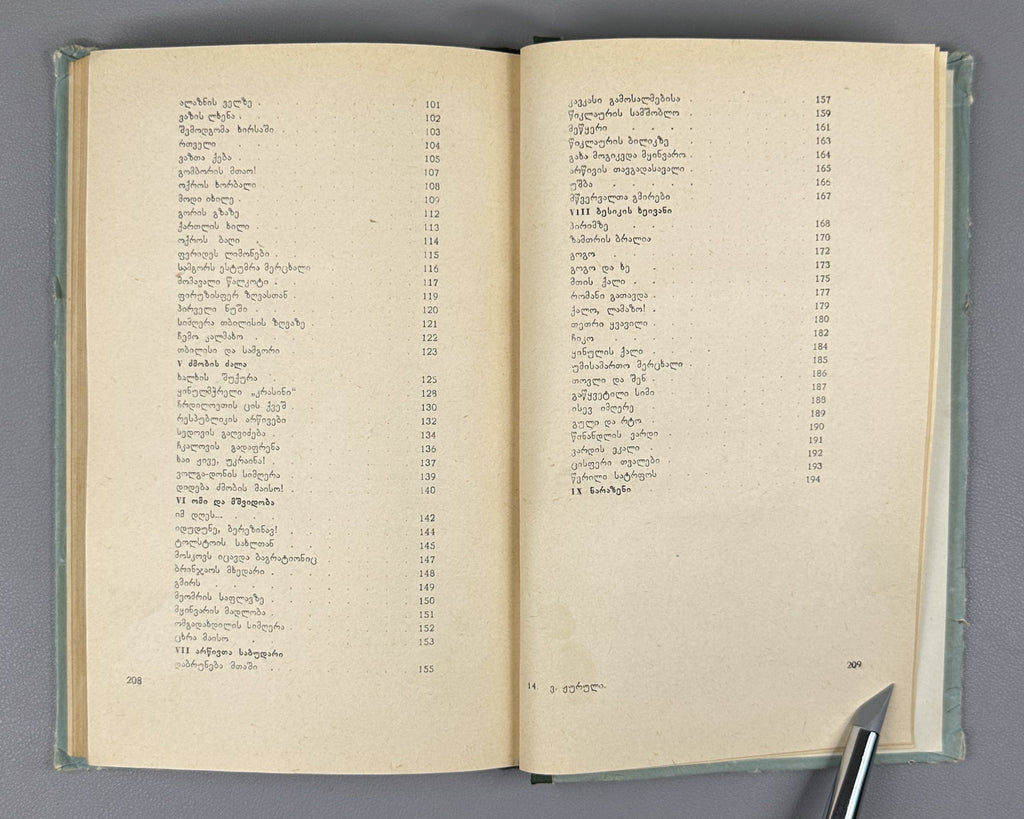 ალაზნის ველზე . 101
ვაზის ლხენა . 102
შემოდგომა ხირსაში . 103
რთველი . 104
ვაზთა ქება . 105
გომბორის მთაო! 107
ოქროს ხორბალი . 108
მოდი იხილე . 109
გორის გზაზე . 112
ქართლის ხილი . 113
ოქროს ბაღი . 114
ფერიდეს ლიმონები . 115
სამგორს ესტუმრა მერცხალი 116
მომავალი წალკოტი . 117
ფირუზისფერ ზღვასთან . 119
პირველი ნუში . 120
სიმღერა თბილისის ზღვაზე . 121
ჩემო კალმახო . 122
თბილისი და სამგორი 123
V ძმობის ძალა
ხალხის შუქურა . 125
ყინულმჭრელი „კრასინი“ 128
ჩრდილოეთის ცის ქვეშ . 130
რესპუბლიკის არწივები 132
სედოვის გაღვიძება . 134
ჩკალოვის გადაფრენა 136
ხაი ჟივე, უკრაინა! . 137
ვოლგა-დონის სიმღერა 139
დიდება ძმობის მაისო! . 140
VI ომი და მშვიდობა
იმ დღეს... . 142
იდუდუნე, ბერეზინავ! . 144
ტოლსტოის სახლთან . 145
მოსკოვს იცავდა ბაგრატიონიც . 147
ბრინჯაოს მხედარი . 148
გმირს . 149
მეომრის საფლავზე . 150
მყინვარის მადლობა . 151
ომგადახდილის სიმღერა . 152
ცხრა მაისო . 153
VII არწივთა საბუდარი
დაბრუნება მთაში . 155
208
კავკასი გამოსალმებისა . 157
წიკლაურის სამშობლო . 159
მეწყერი . 161
წიკლაურის ბილიკზე . 163
გახა მოგიკვდა მყინვარო . 164
არწივის თავგადასავალი . 165
უშბა . 166
მწვერვალთა გმირები 167
VIII ბესიკის ხეივანი
პირიმზე . 168
ზამთრის ბრალია 170
გოგო . 172
გოგო და ხე . 173
მთის ქალი . 175
რომანი გათავდა . 177
ქალო, ლამაზო! . 179
თეთრი ყვავილი . 180
ჩიკო . 182
ყინულის ქალი . 184
უმისამართო მერცხალი . 185
თოვლი და შენ . 186
გაწყვეტილი სიმი 187
ისევ იმღერე . 188
გული და რტო . 189
წინანდლის ვარდი . 190
ვარდის ეკალი . 191
ცისფერი თვალები . 192
წერილი სატრფოს 193
IX ნარაზენი . 194
209
14. ვ. ჟურული.